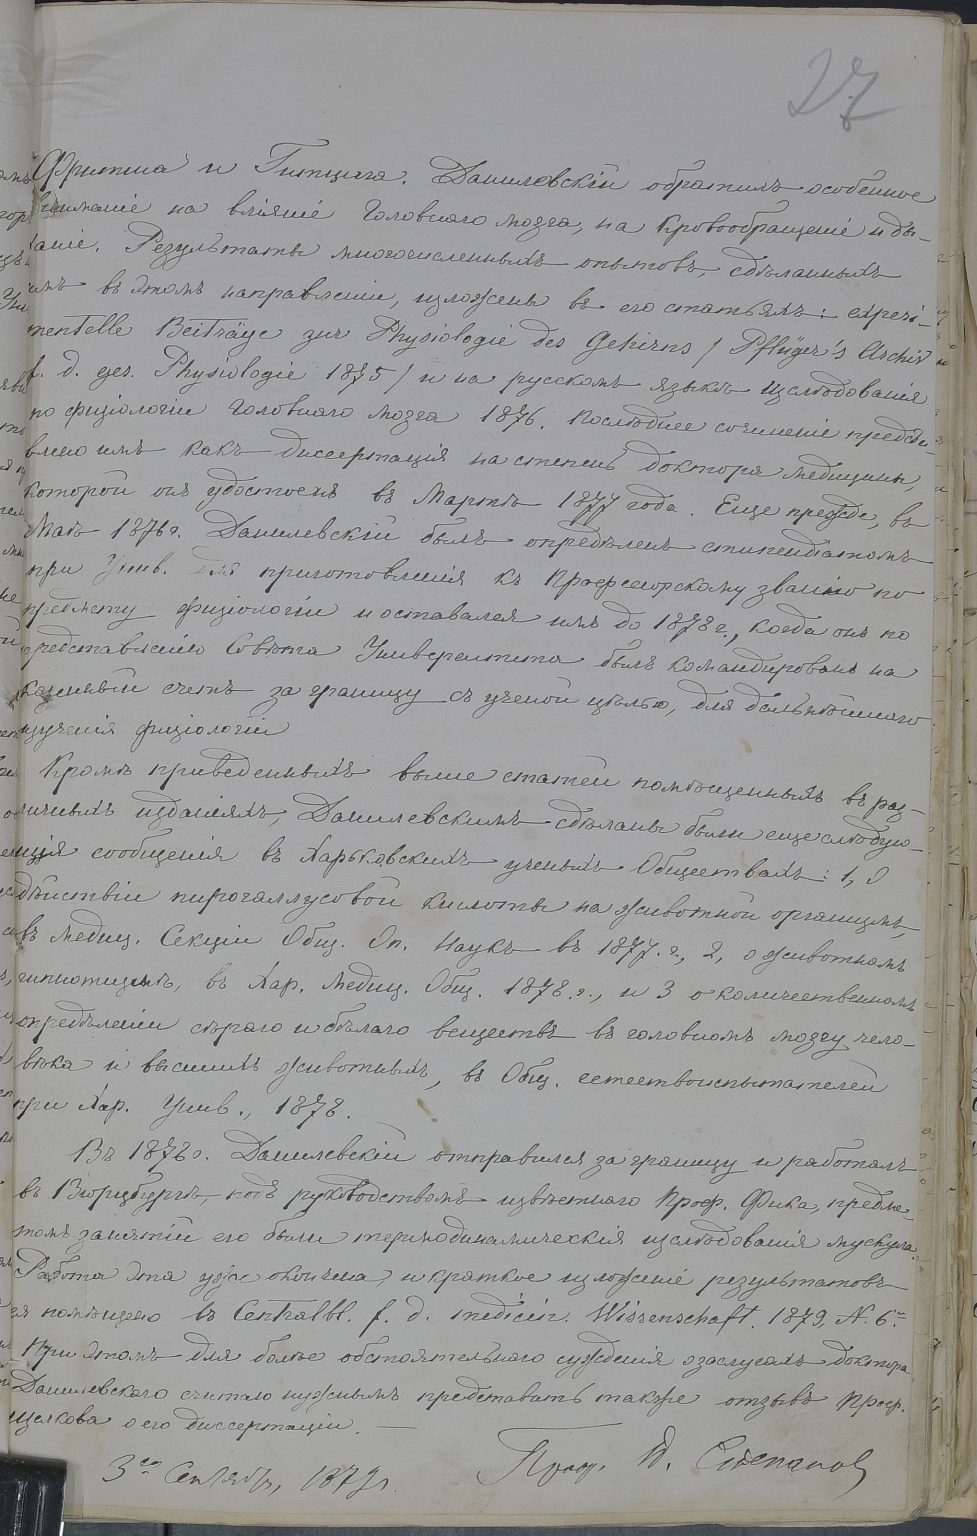 27
Фритша и Гитцига. Данилевскій обратилъ особенное
вниманіе на вліяніе головнаго мозга, на кровообращеніе и ды-
ханіе. Результаты многочисленныхъ опытовъ, сдѣланныхъ
имъ въ этомъ направленіи, изложены въ его статьяхъ: experi-
mentelle Beiträge zur Physiologie des Gehirns / Pflüger's Archiv
f. d. ges. Physiologie 1875 / и на русскомъ языкѣ Изслѣдованія
по физіологіи головнаго мозга 1876. Послѣднее сочиненіе предста-
влено имъ какъ диссертація на степень доктора медицины,
которой онъ удостоенъ въ Мартѣ 1877 года. Еще прежде, въ
Маѣ 1876 г. Данилевскій былъ опредѣленъ стипендіатомъ
при Унив. для приготовленія къ профессорскому званію по
предмету физіологіи и оставался имъ до 1878 г., когда онъ по
представленію Совѣта Университета былъ командированъ на
казенный счетъ за границу съ ученой цѣлью, для дальнѣйшаго
изученія физіологіи
Кромѣ приведенныхъ выше статей помѣщенныхъ въ раз-
личныхъ изданіяхъ, Данилевскимъ сдѣланы были еще слѣдую-
щія сообщенія въ Харьковскихъ ученыхъ Обществахъ: 1, О
дѣйствіи пирогаллусовой кислоты на животной организмъ,
въ медиц. Секціи Общ. Оп. Наукъ въ 1877 г., 2, о животномъ
гипнотизмѣ, въ Хар. Медиц. Общ. 1878 г., и 3 о количественномъ
опредѣленіи сѣраго и бѣлаго веществъ въ головномъ мозгу чело-
вѣка и высшихъ животныхъ, въ Общ. естествоиспытателей
при Хар. Унив., 1878.
Въ 1878 г. Данилевскій отправился за границу и работалъ
въ Вюрцбургѣ, подъ руководствомъ извѣстнаго Проф. Фика, предме-
томъ занятій его были термодинамическія изслѣдованія мускула.
Работа эта уже окончена, и краткое изложеніе результатовъ
ея помѣщено въ Centralbl. f. d. medicin. Wissenschaft. 1879, N. 6.
При этомъ для болѣе обстоятельнаго сужденія о заслугахъ доктора
Данилевскаго считаю нужнымъ представить также отзывъ Проф.
Щелкова о его диссертаціи. —
3го Сентября, 1879 г. Проф. П. Степановъ